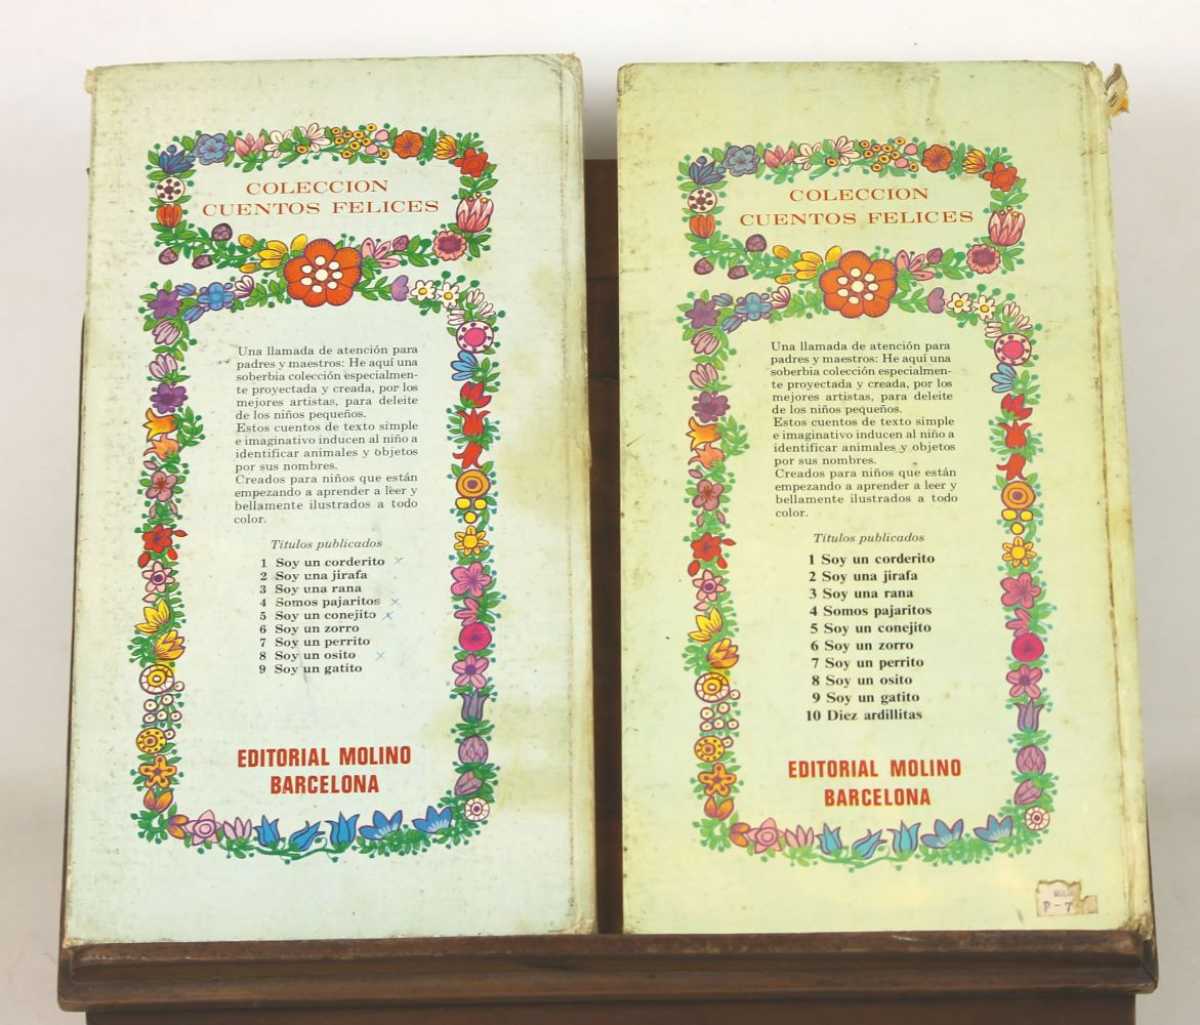 COLECCION
CUENTOS FELICES
Una llamada de atención para
padres y maestros: He aquí una
soberbia colección especialmen-
te proyectada y creada, por los
mejores artistas, para deleite
de los niños pequeños.
Estos cuentos de texto simple
e imaginativo inducen al niño a
identificar animales y objetos
por sus nombres.
Creados para niños que están
empezando a aprender a leer y
bellamente ilustrados a todo
color.
Títulos publicados
1 Soy un corderito
2 Soy una jirafa
3 Soy una rana
4 Somos pajaritos
5 Soy un conejito
6 Soy un zorro
7 Soy un perrito
8 Soy un osito
9 Soy un gatito
EDITORIAL MOLINO
BARCELONA
COLECCION
CUENTOS FELICES
Una llamada de atención para
padres y maestros: He aquí una
soberbia colección especialmen-
te proyectada y creada, por los
mejores artistas, para deleite
de los niños pequeños.
Estos cuentos de texto simple
e imaginativo inducen al niño a
identificar animales y objetos
por sus nombres.
Creados para niños que están
empezando a aprender a leer y
bellamente ilustrados a todo
color.
Títulos publicados
1 Soy un corderito
2 Soy una jirafa
3 Soy una rana
4 Somos pajaritos
5 Soy un conejito
6 Soy un zorro
7 Soy un perrito
8 Soy un osito
9 Soy un gatito
10 Diez ardillitas
EDITORIAL MOLINO
BARCELONA
P-7